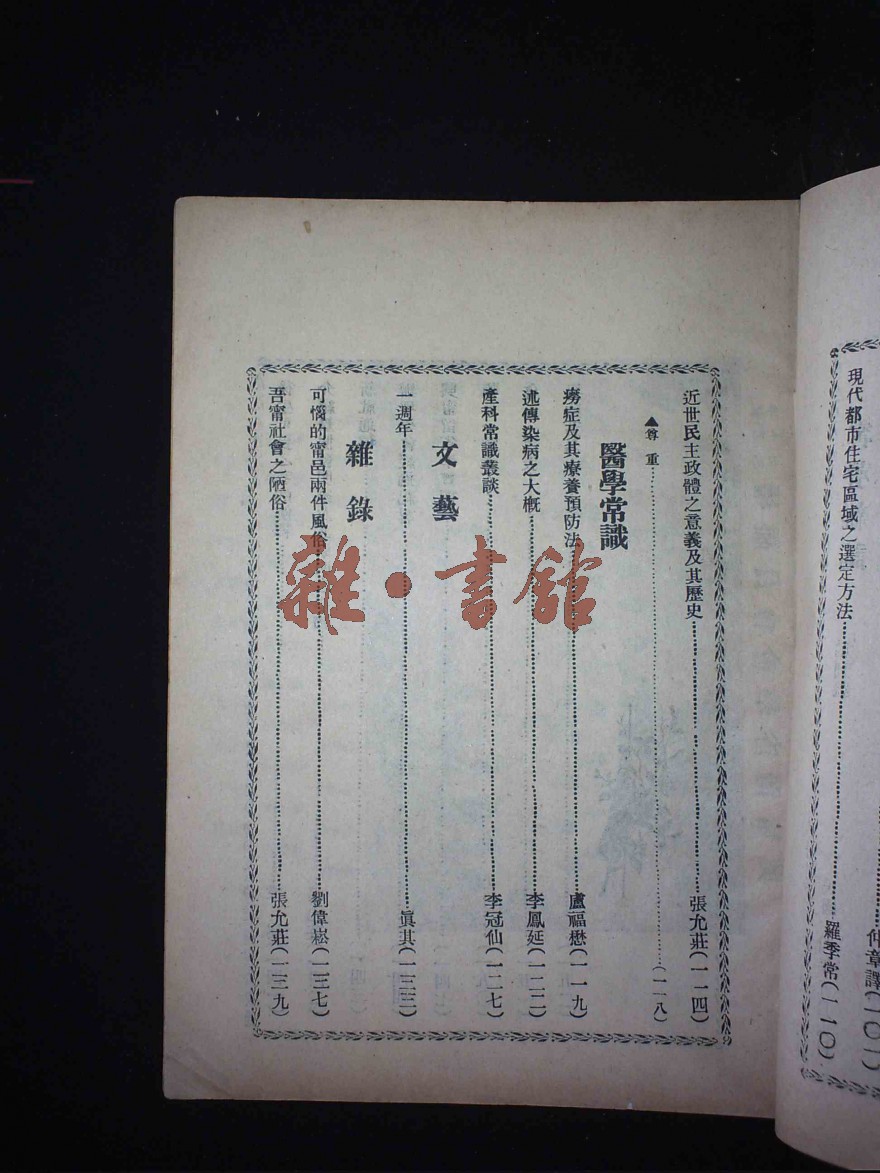 仲章譯(一〇一)
現代都市住宅區域之選定方法……羅季常(一一〇)
近世民主政體之意義及其歷史……張允莊(一一四)
▲尊重……(一一八)
醫學常識
癆症及其療養預防法……盧福懋(一一九)
述傳染病之大概……李鳳延(一二二)
產科常識叢談……李冠仙(一二七)
文藝
一週年……眞其(一三三)
雜錄
可惱的甯邑兩件風俗……劉偉崧(一三七)
吾甯社會之陋俗……張允莊(一三九)
雜·書館